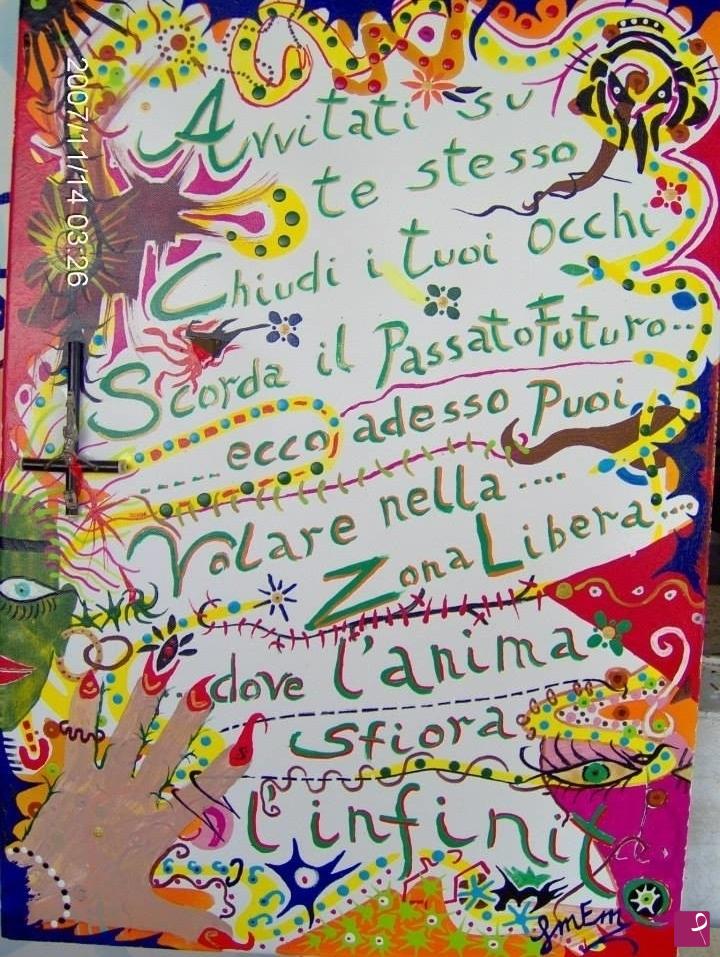 2007/11/14 03:26
Avvitati su
te stesso
Chiudi i tuoi occhi
Scorda il PassatoFuturo...
.....ecco adesso Puoi
Volare nella....
Zona Libera....
...dove l'anima
sfiora
l'infinit